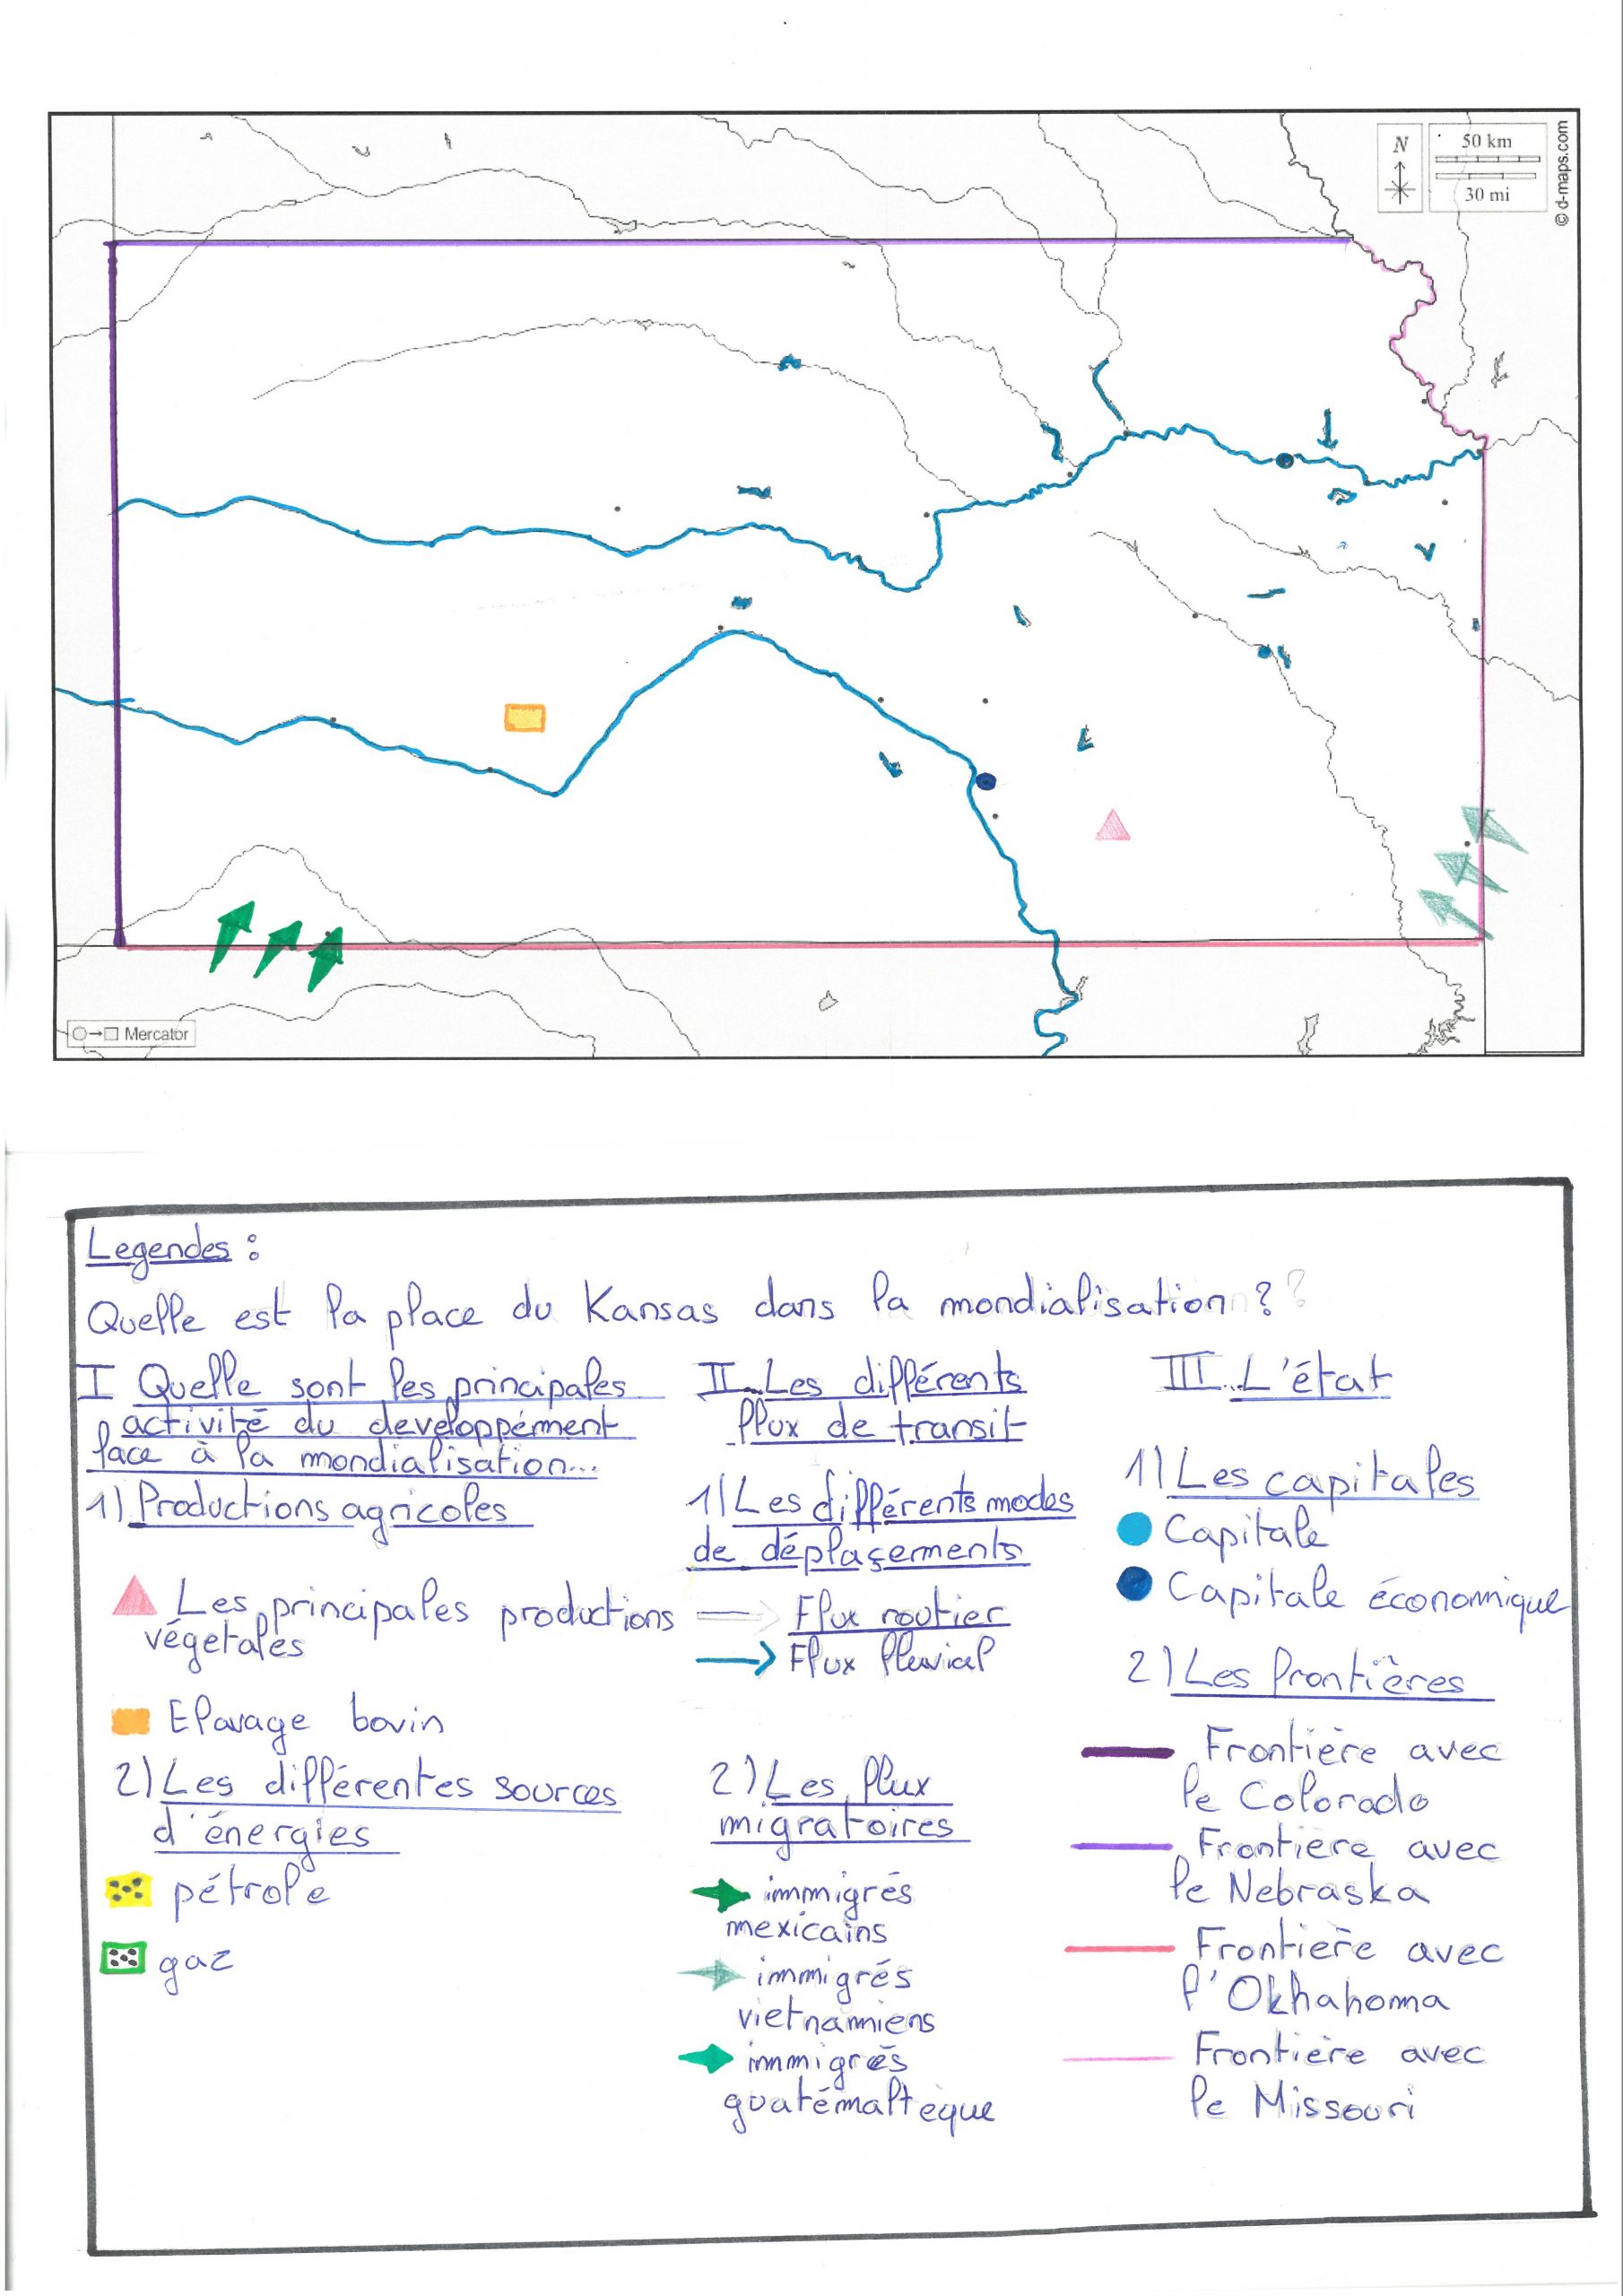 N
50 km
30 mi
© d-maps.com
Mercator
Legendes :
Quelle est la place du Kansas dans la mondialisation ? ?
I Quelle sont les principales
activité du developpément
face à la mondialisation...
1) Productions agricoles
Les principales productions
végétales
Elavage bovin
2) Les différentes sources
d'énergies
pétrole
gaz
II Les différents
flux de transit
1) Les différents modes
de déplaçements
Flux routier
Flux fluvial
2) Les flux
migratoires
immigrés
mexicains
immigrés
vietnamiens
immigrés
guatémaltèque
III L'état
1) Les capitales
Capitale
Capitale économique
2) Les frontières
Frontière avec
le Colorado
Frontière avec
le Nebraska
Frontière avec
l'Okhahoma
Frontière avec
le Missouri